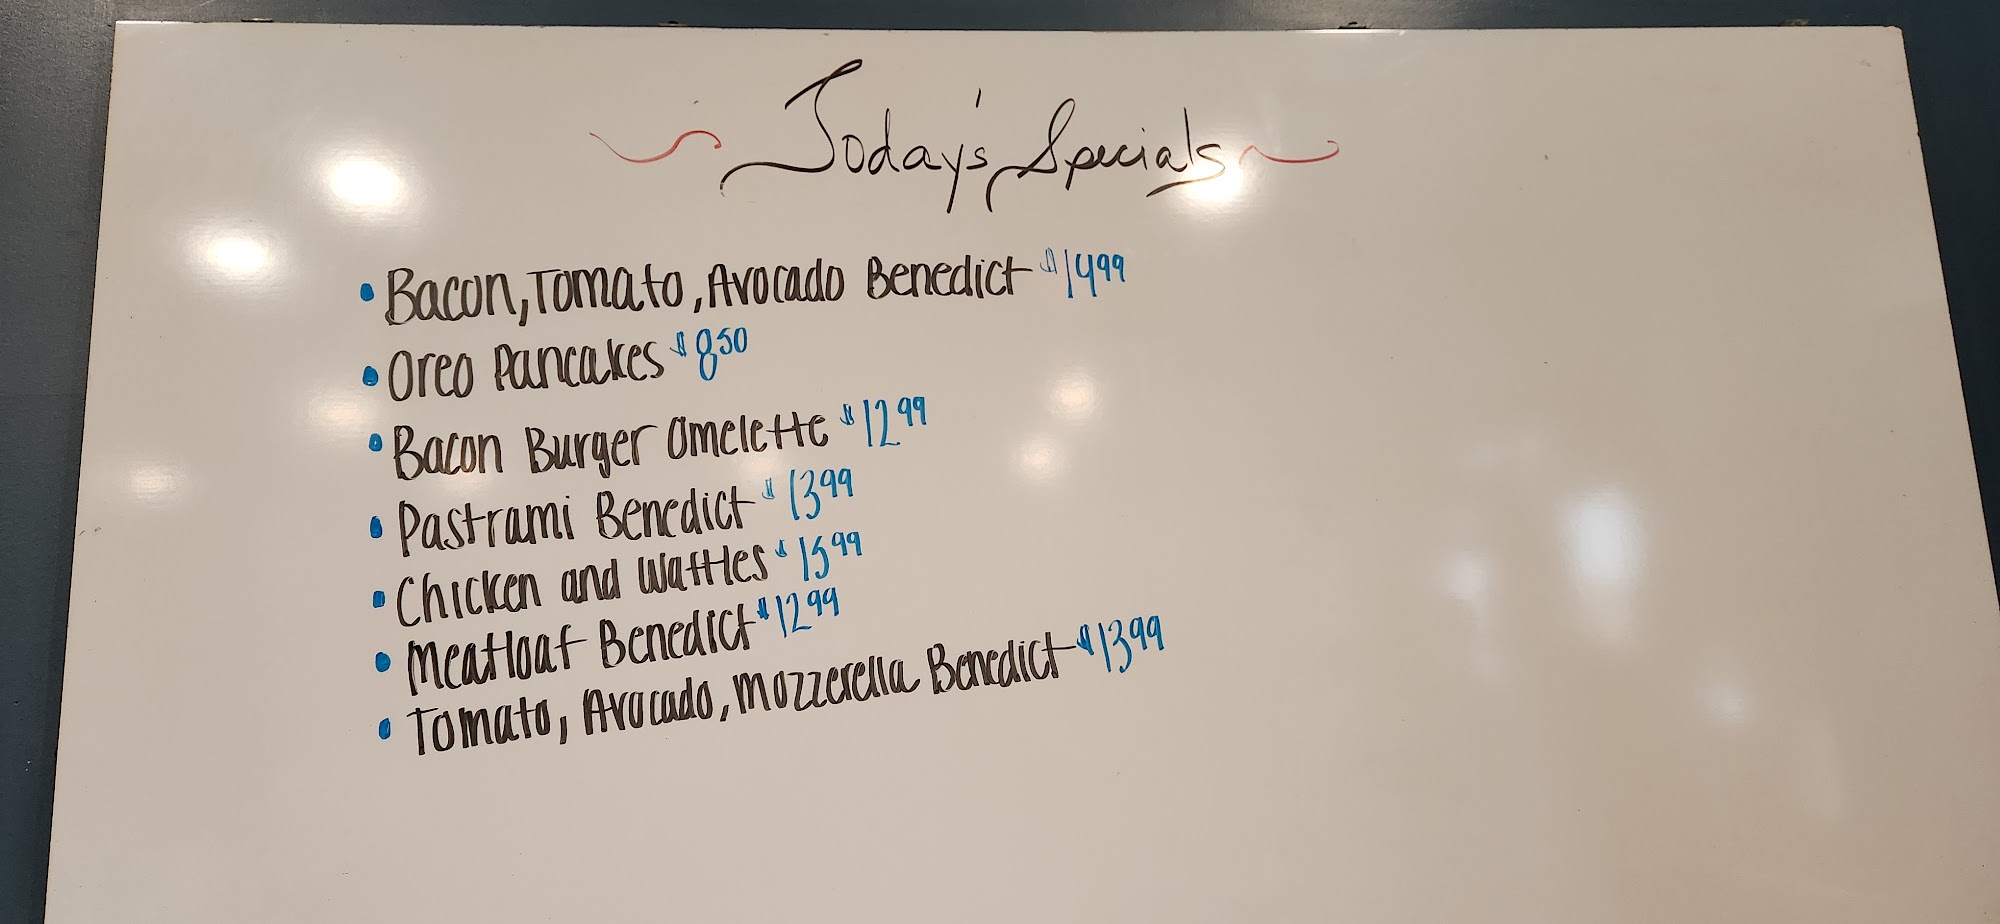 Today's Specials
• Bacon, Tomato, Avocado Benedict $14.99
• Oreo Pancakes $8.50
• Bacon Burger Omelette $12.99
• Pastrami Benedict $13.99
• Chicken and Waffles $15.99
• Meatloaf Benedict $12.99
• Tomato, Avocado, Mozzerella Benedict $13.99